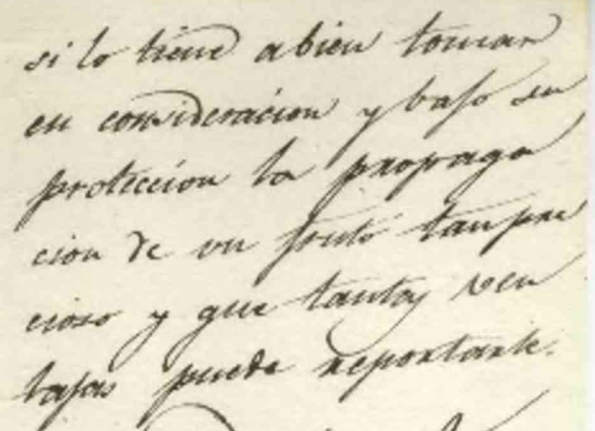 si lo tiene abien tomar
en consideracion y bajo su
proteccion la propaga
cion de un fruto tan pre
cioso y que tantas ven
tajas puede reportarle.